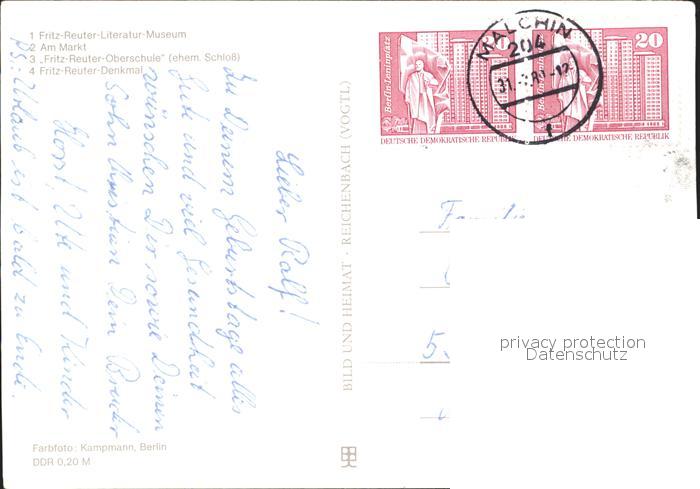 1 Fritz-Reuter-Literatur-Museum
2 Am Markt
3 „Fritz-Reuter-Oberschule" (ehem. Schloß)
4 Fritz-Reuter-Denkmal
Lieber Ralf!
Zu Deinem Geburtstage alles
Gute und viel Gesundheit
wünschen Dir sowie Deinem
Sohn Christian Dein Bruder
Horst, Ute und Kinder
PS: Urlaub ist bald zu Ende.
Farbfoto: Kampmann, Berlin
DDR 0,20 M
BILD UND HEIMAT · REICHENBACH (VOGTL)
MALCHIN
204
Berlin-Leninplatz
20
DEUTSCHE DEMOKRATISCHE REPUBLIK
DEUTSCHE DEMOKRATISCHE REPUBLIK
Familie
5.
privacy protection
Datenschutz